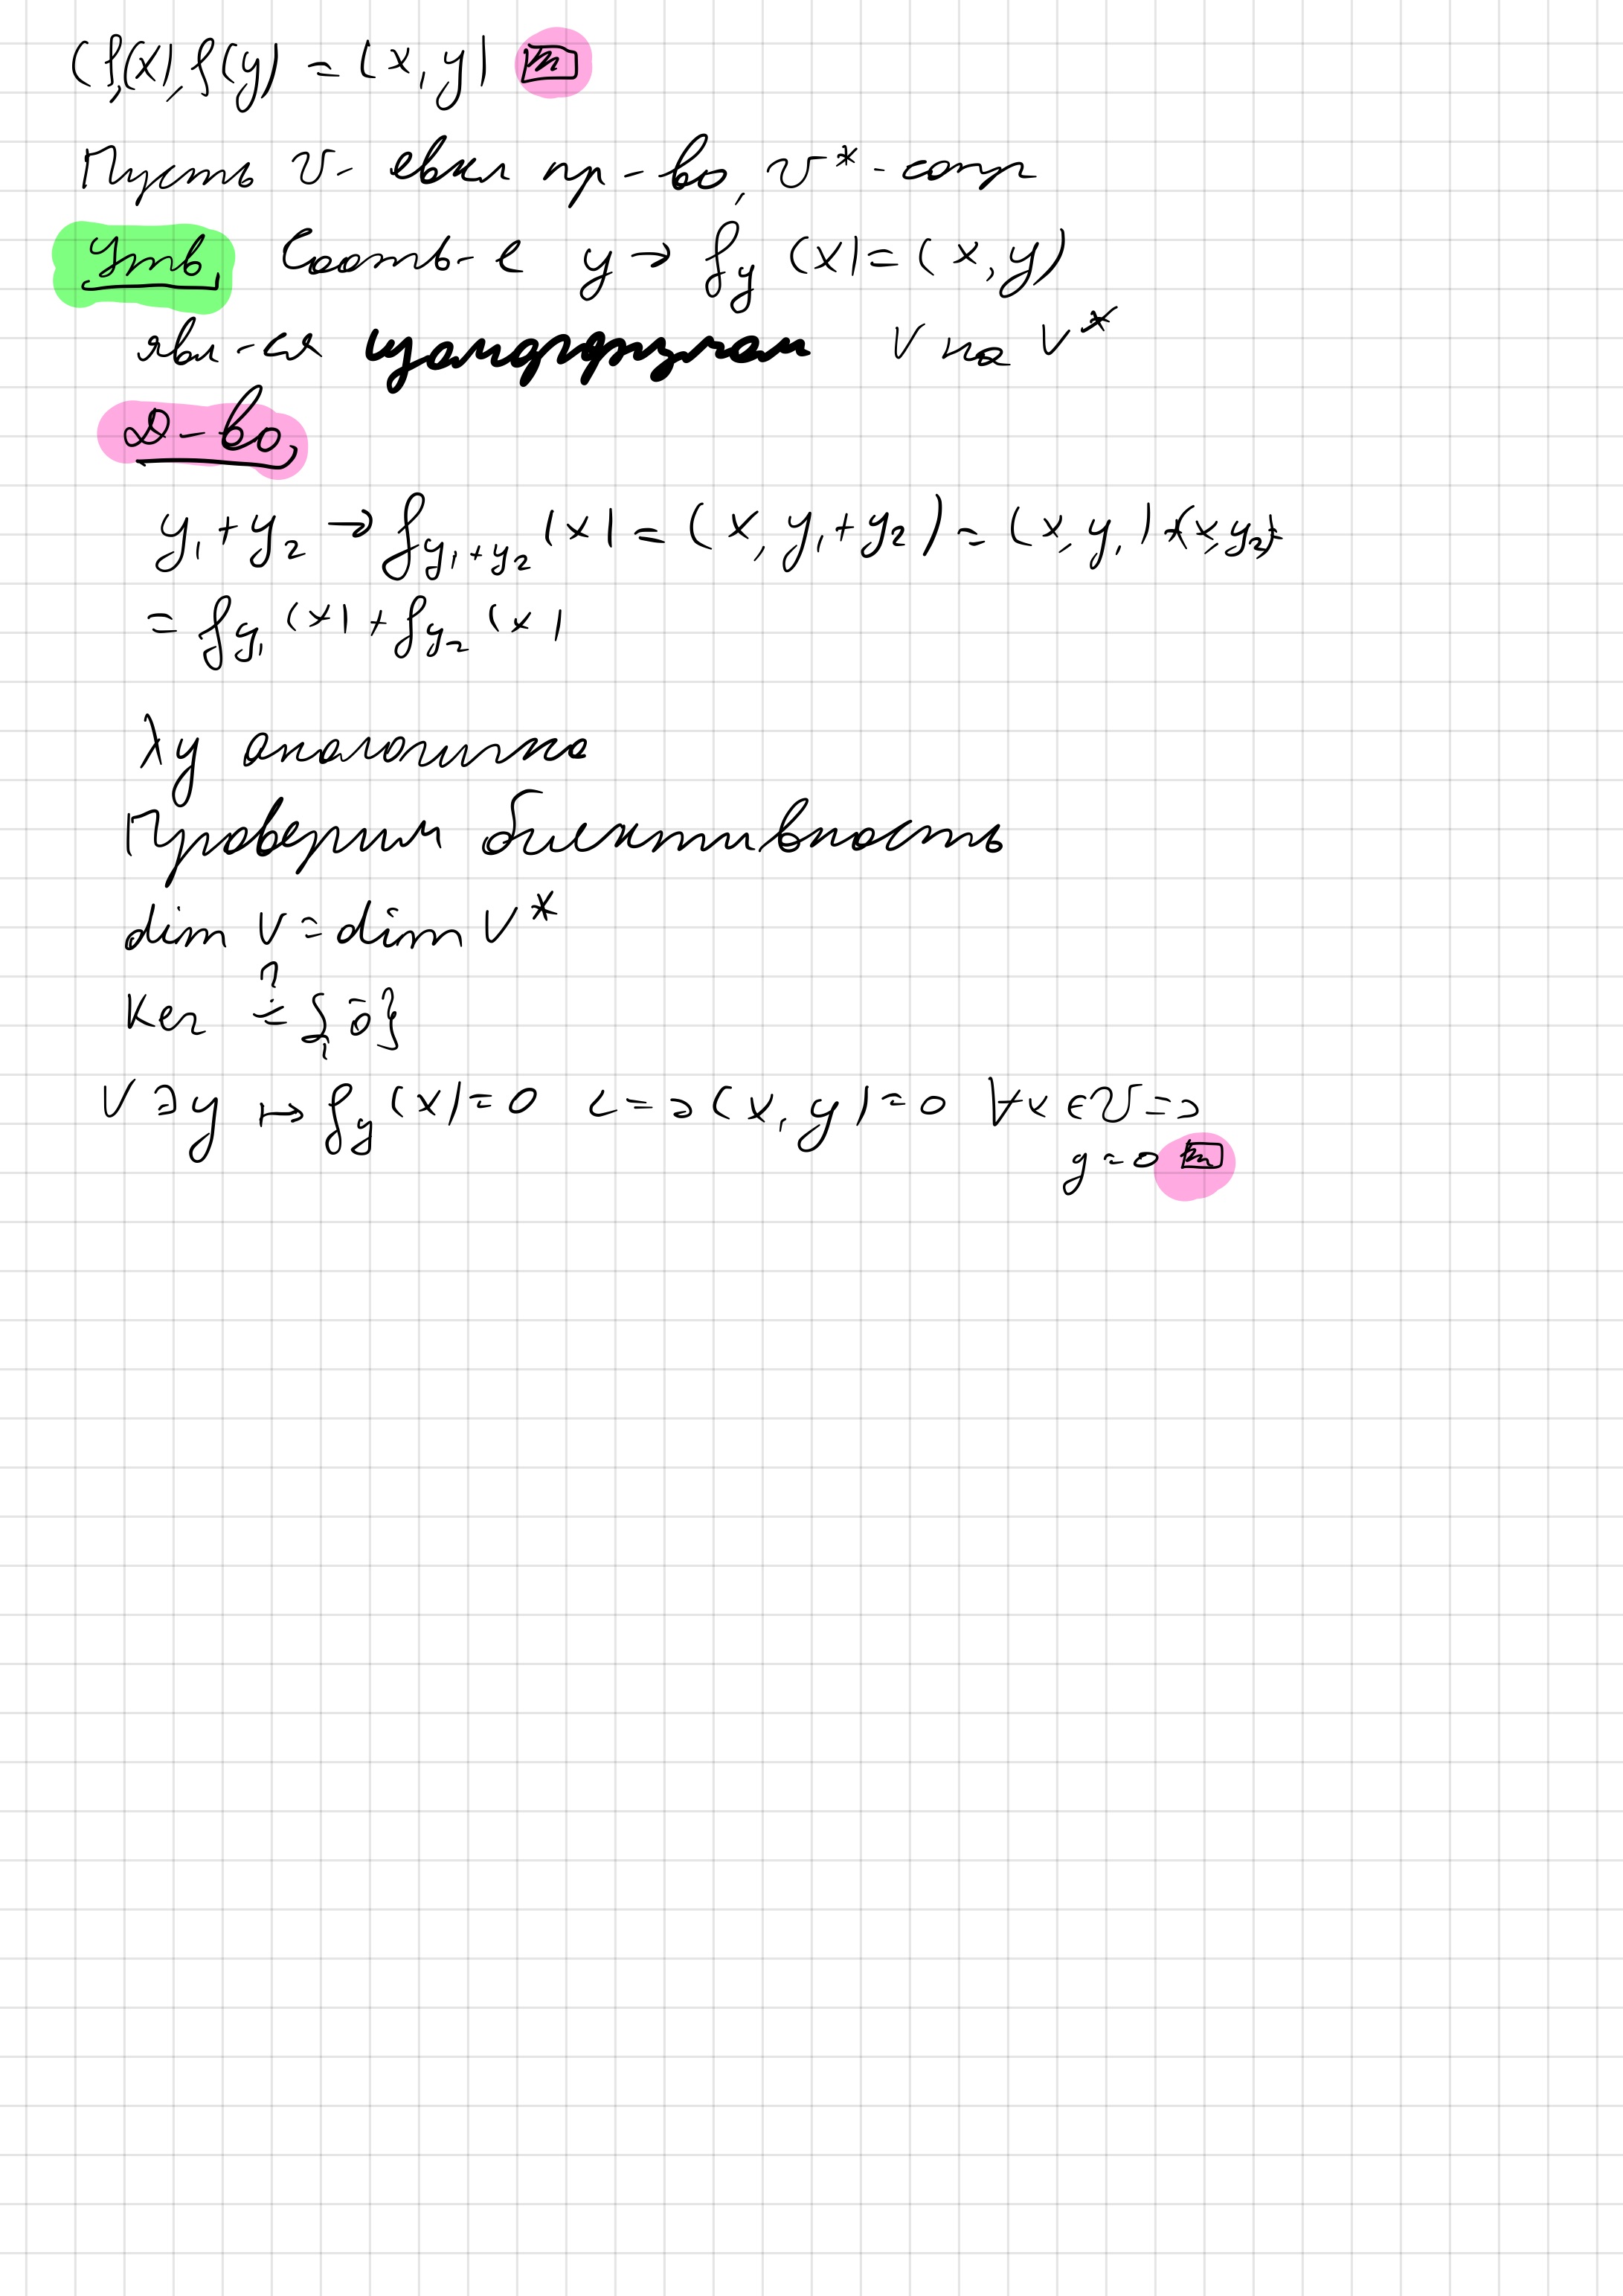 (f(x), f(y)) = (x, y)
Пусть V - евкл пр-во, V* - сопр
Утв. Соотв-е y → f_y (x) = (x, y)
явл-ся изоморфизмом V на V*
Д-во,
y₁ + y₂ → f_{y₁+y₂} (x) = (x, y₁+y₂) = (x, y₁) + (x, y₂) =
= f_{y₁} (x) + f_{y₂} (x)
λy аналогично
Проверим биективность
dim V = dim V*
Ker ≟ {0̄}
V ∋ y ↦ f_y (x) = 0 <=> (x, y) = 0 ∀x ∈ V =>
y = 0